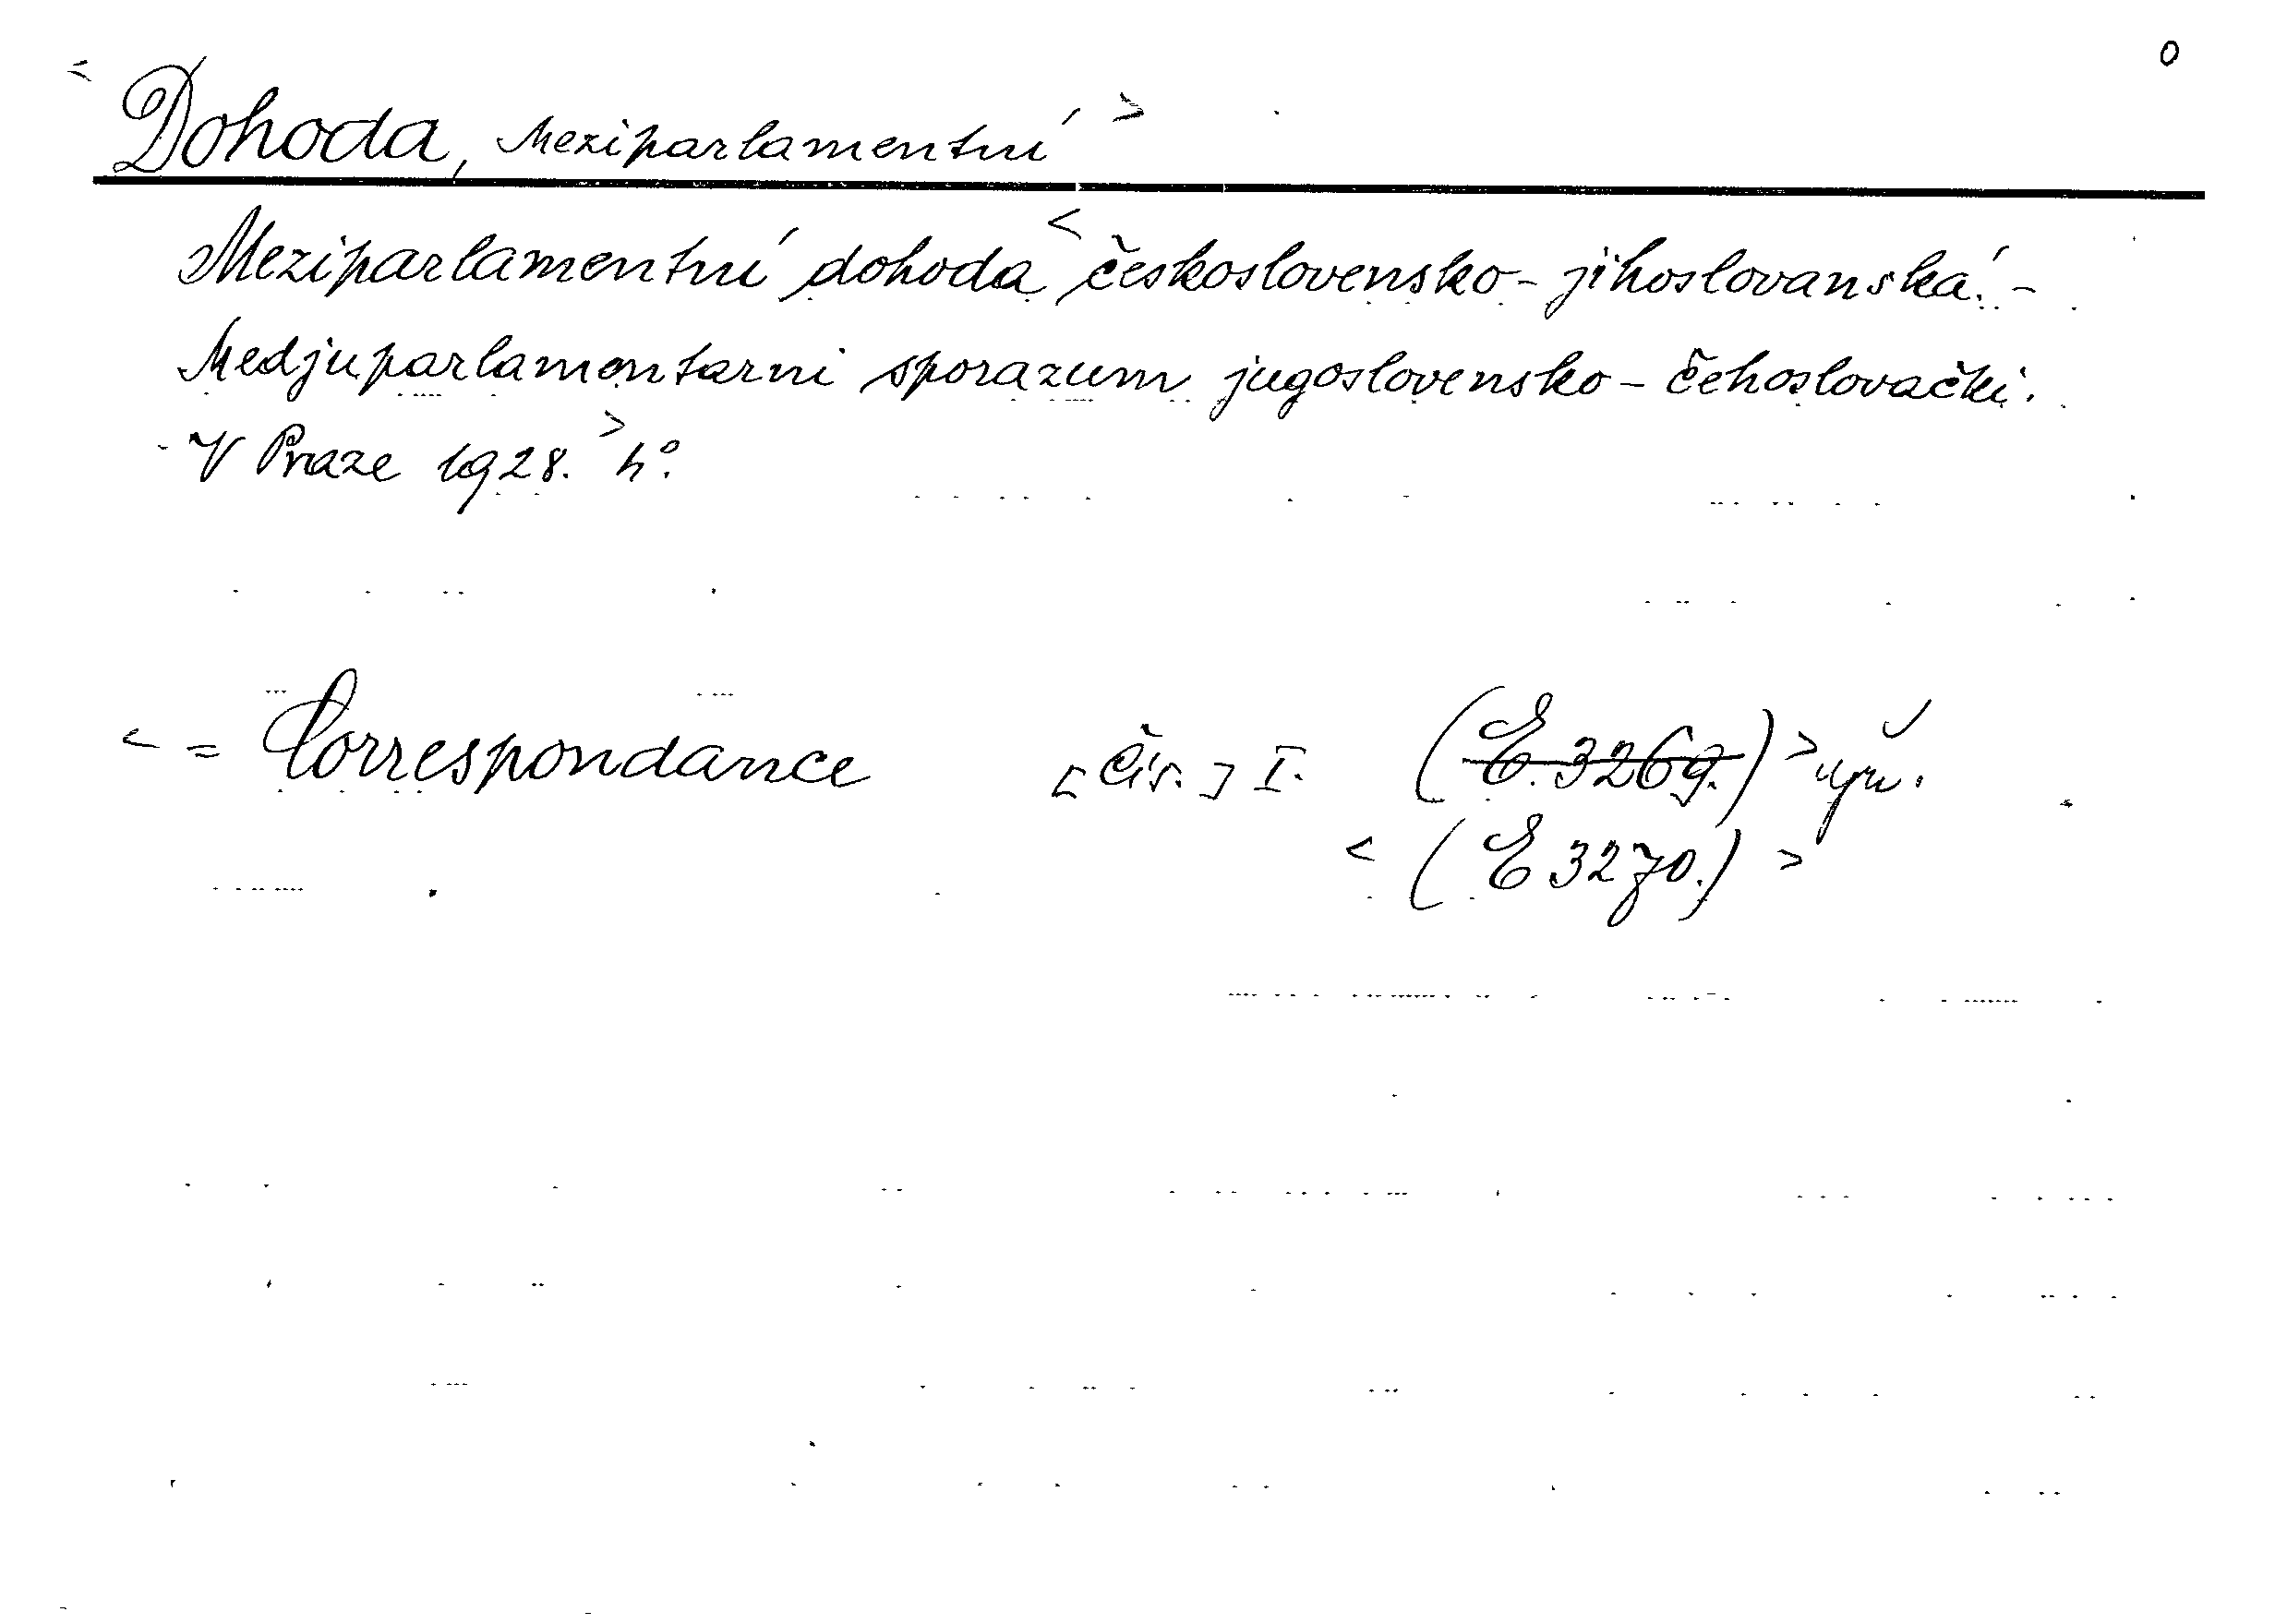 0
< Dohoda, Meziparlamentní >
Meziparlamentní dohoda < československo - jihoslovanská. -
Medjuparlamentarni sporazum jugoslovensko - čehoslovački.
- V Praze 1928. > 4°.
< = Correspondance [čís.] I. (E. 3269.) >
< (E 3270.) >